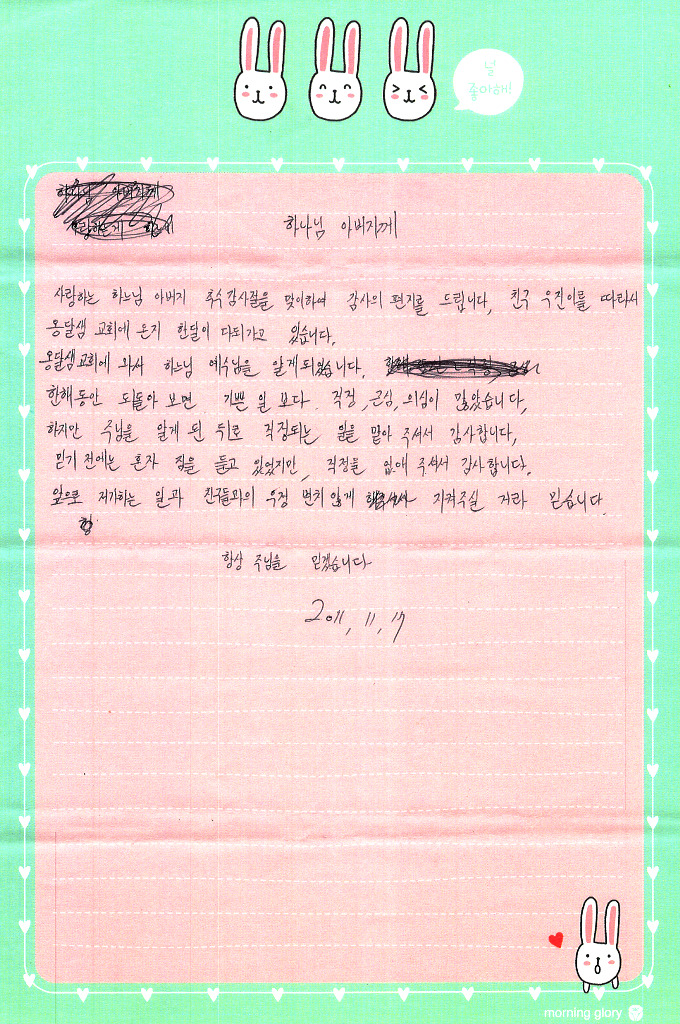 널
좋아해!
하나님 아버지께
하나님 아버지께
사랑하는 하느님 아버지 추수감사절을 맞이하여 감사의 편지를 드립니다, 친구 우진이를 따라서
옹달샘 교회에 온지 한달이 다되가고 있습니다,
옹달샘교회에 와서 하느님 예수님을 알게되었습니다.
한해동안 되돌아 보면 기쁜 일 보다 걱정, 근심, 의심이 많았습니다,
하지만 주님을 알게 된 뒤로 걱정되는 일을 맡아 주셔서 감사합니다,
믿기 전에는 혼자 짐을 들고 있었지만, 걱정을 없애 주셔서 감사합니다.
앞으로 저가하는 일과 친구들과의 우정 변치 않게 지켜주실 거라 믿습니다.
항상 주님을 믿겠습니다
2011, 11, 17
morning glory